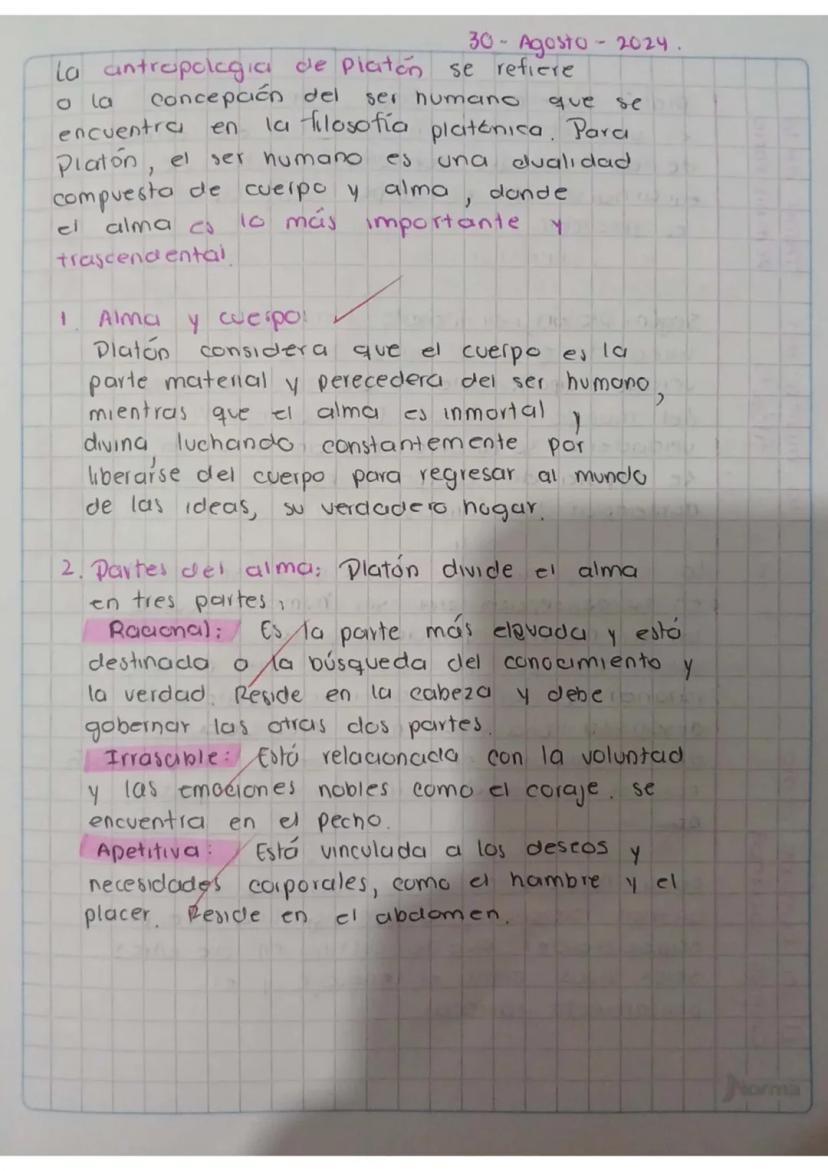 30 - Agosto - 2024.
La antropología de Platón se refiere
a la concepción del ser humano que se
encuentra en la filosofía platónica. Para
Platón, el ser humano es una dualidad
compuesta de cuerpo y alma, donde
el alma es lo más importante y
trascendental.
1. Alma y cuerpo:
Platón considera que el cuerpo es la
parte material y perecedera del ser humano,
mientras que el alma es inmortal y
divina, luchando constantemente por
liberarse del cuerpo para regresar al mundo
de las ideas, su verdadero hogar.
2. Partes del alma: Platón divide el alma
en tres partes:
Racional: Es la parte más elevada y está
destinada a la búsqueda del conocimiento y
la verdad. Reside en la cabeza y debe
gobernar las otras dos partes.
Irrascible: Está relacionada con la voluntad
y las emociones nobles como el coraje. se
encuentra en el pecho.
Apetitiva: Está vinculada a los deseos y
necesidades corporales, como el hambre y el
placer. Reside en el abdomen.
Norma